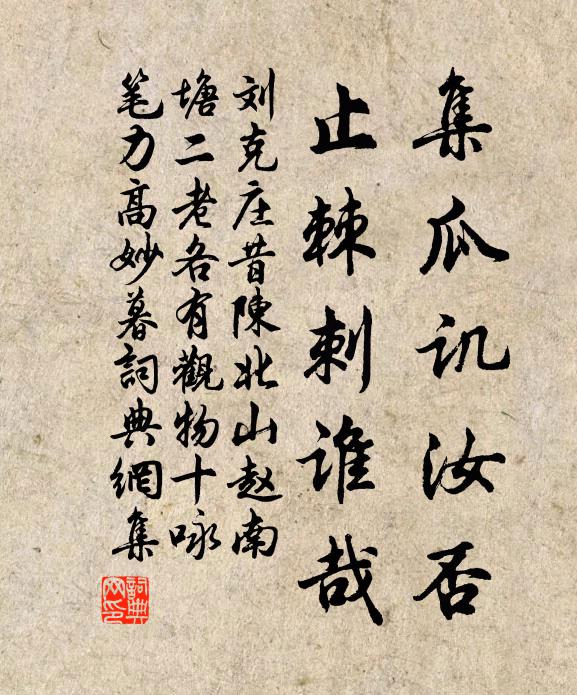 集瓜讥汝否
止棘刺谁哉
刘克庄昔陳北山赵南
塘二老各有觀物十咏
笔力高妙暮詞典網集
詞典网印